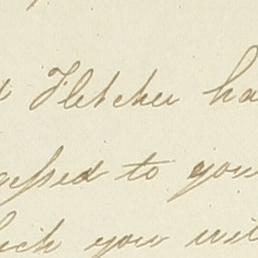 Fletcher ha
gessed to you
hich you wil